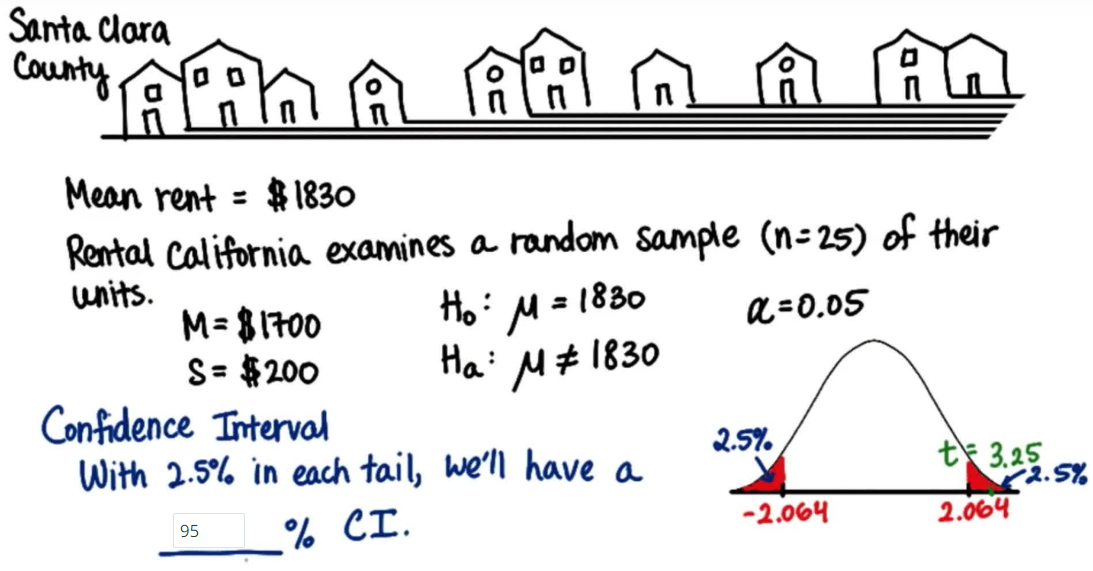 Santa Clara
County
Mean rent = $1830
Rental California examines a random sample (n=25) of their
units.
M = $1700
H₀: μ = 1830
α=0.05
S = $200
Hₐ: μ ≠ 1830
Confidence Interval
With 2.5% in each tail, we'll have a
95 % CI.
2.5%
t = 3.25
2.5%
-2.064
2.064